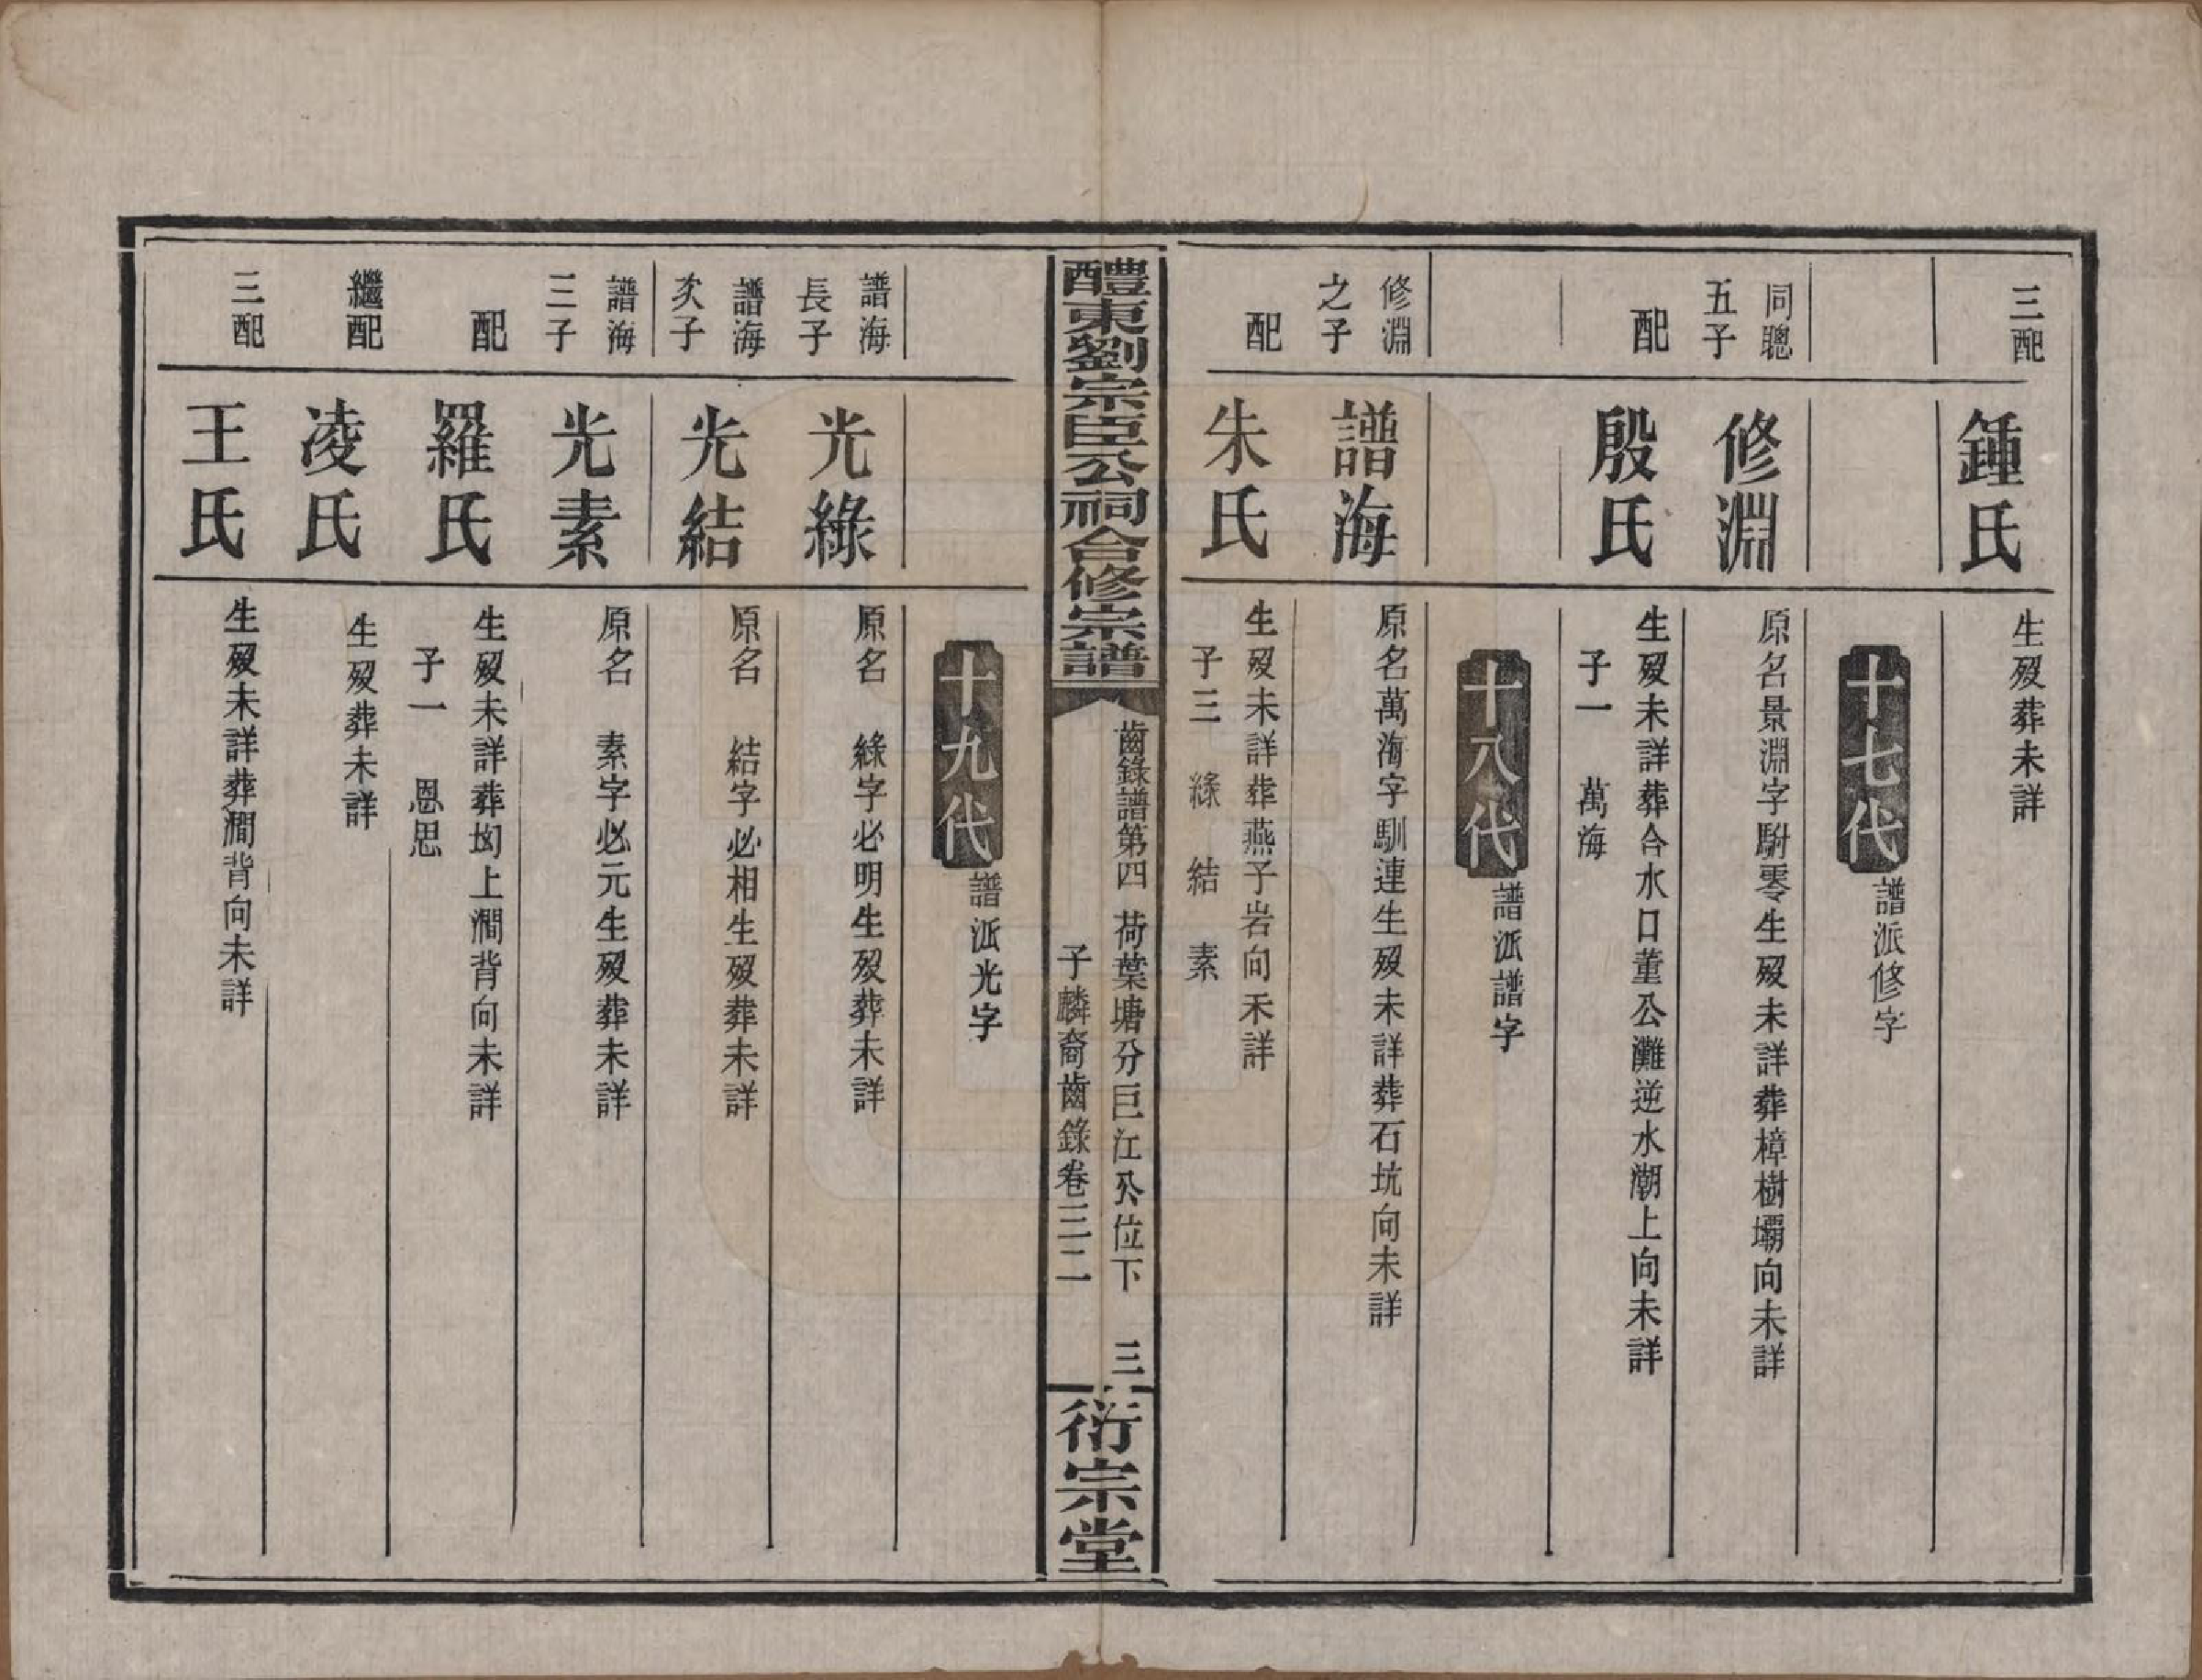 三配
鍾氏
生歿葬未詳
十七代
譜派修字
同聰
五子
修淵
原名景淵字駙零生歿未詳葬樟樹壩向未詳
配
殷氏
生歿未詳葬合水口董公灘逆水潮上向未詳
子一 萬海
十八代
譜派譜字
修淵
之子
譜海
原名萬海字馴連生歿未詳葬石坑向未詳
配
朱氏
生歿未詳葬燕子岩向未詳
子三 綠 結 素
醴東劉宗臣公祠合修宗譜
齒錄譜第四 荷葉塘分巨江公位下 三
子麟裔齒錄卷三二
衍宗堂
十九代
譜派光字
譜海
長子
光綠
原名 綠字必明生歿葬未詳
譜海
次子
光結
原名 結字必相生歿葬未詳
譜海
三子
光素
原名 素字必元生歿葬未詳
配
羅氏
生歿未詳葬坳上澗背向未詳
子一 恩思
繼配
凌氏
生歿葬未詳
三配
王氏
生歿未詳葬澗背向未詳